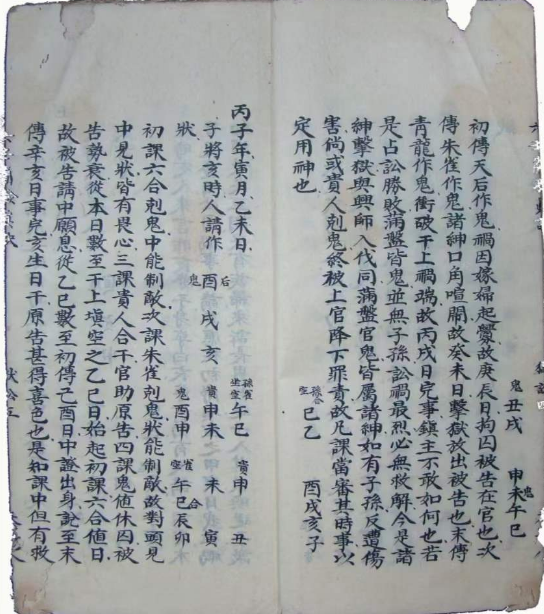 初傳天后作鬼禍因嫁婦起釁故庚辰日拘囚被告在官也次
傳朱雀作鬼諸紳口角喧鬧故癸未日擊獄放出被告也末傳
青龍作鬼衝破干上禍端故丙戌日完事鎮主不敢如何也若
是占訟勝敗滿盤皆鬼並無子孫訟禍最烈必無救解今是諸
紳擊獄與興師入伐同滿盤官鬼皆屬諸紳如有子孫反遭傷
害倘或貴人剋鬼終被上官降下罪責故凡課當審其時事以
定用神也
鬼 丑戌
申未午巳
鬼
己乙
酉戌亥子
丙子年寅月乙未日
子將亥時人請作
狀
后
鬼 酉戌亥
午巳
貴申未
鬼酉申
貴申 丑
未 寅
雀
空 午巳辰卯
合
初課六合剋鬼中能制敵次課朱雀剋鬼狀能制敵故對頭見
中見狀皆有畏心三課貴人合干官助原告四課鬼值休囚被
告勢衰從本日數至干上填空之乙巳日始起初課六合值日
故被告請中願息從乙巳數至初傳己酉日中證出身說至末
傳辛亥日事完亥生日干原告甚得喜色也是知課中但有救